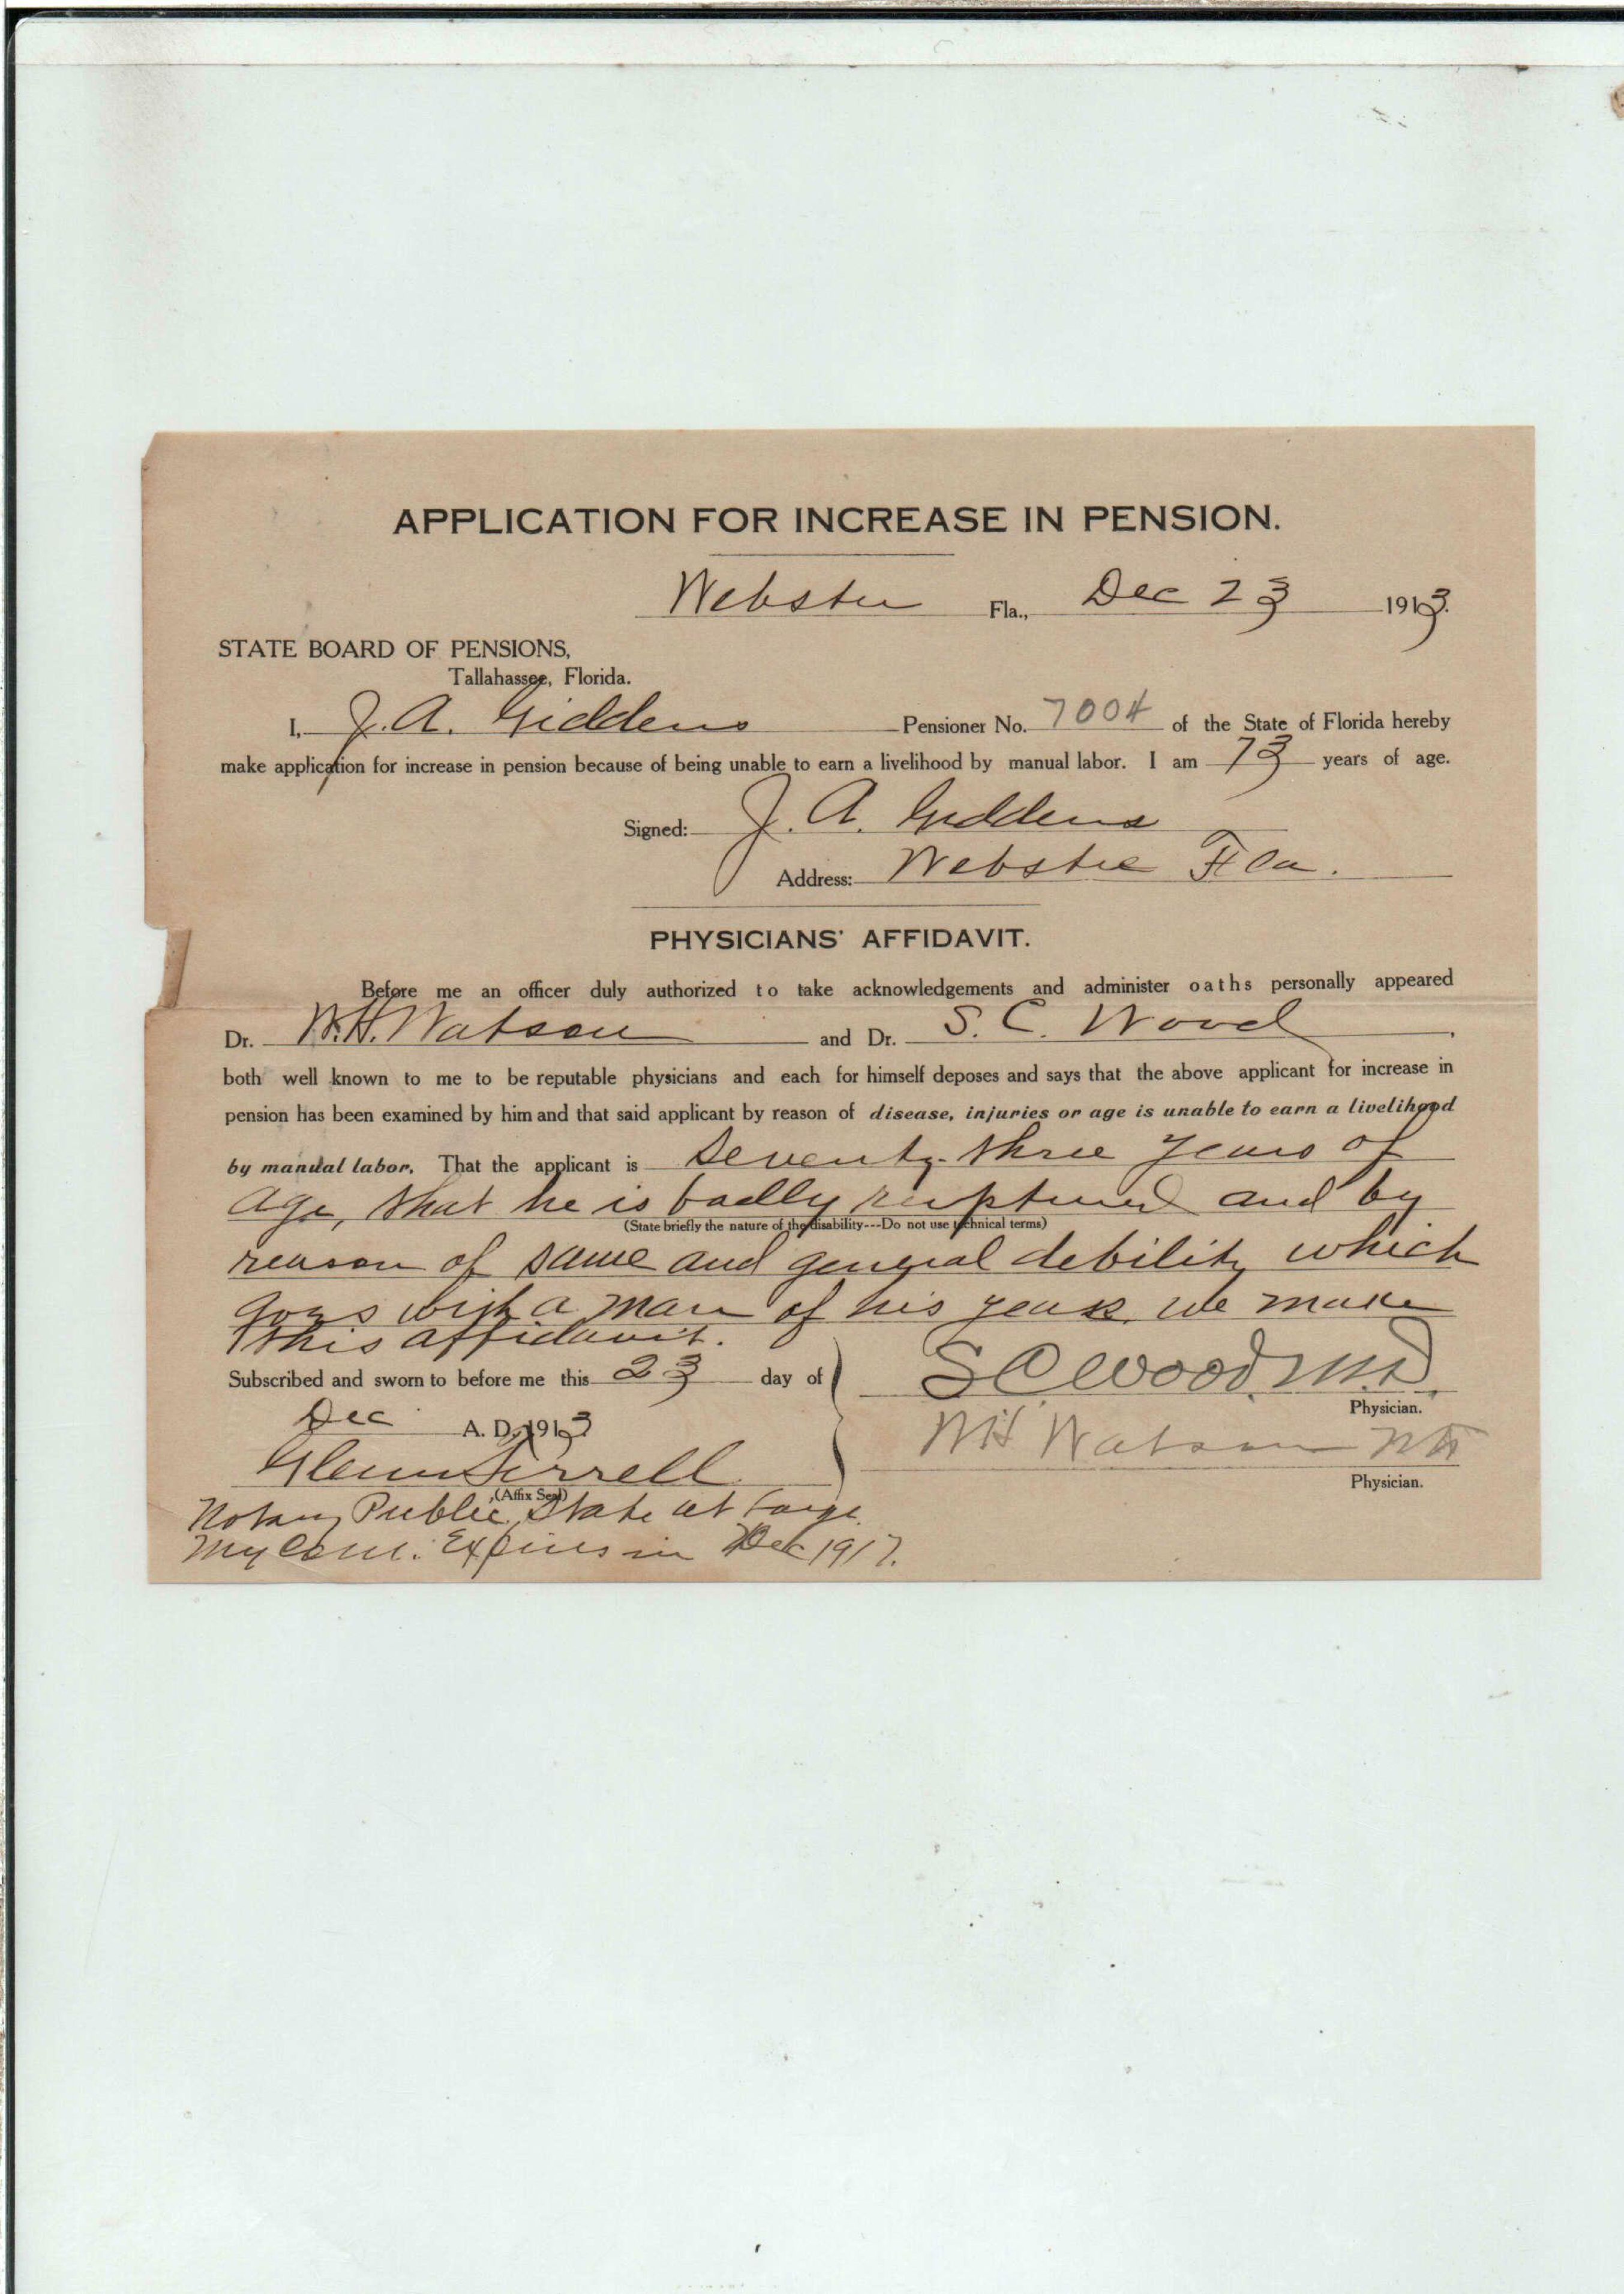 APPLICATION FOR INCREASE IN PENSION.
Webster Fla., Dec 23 1913.
STATE BOARD OF PENSIONS,
Tallahassee, Florida.
I, J. A. Giddens Pensioner No. 7004 of the State of Florida hereby
make application for increase in pension because of being unable to earn a livelihood by manual labor. I am 73 years of age.
Signed: J. A. Giddens
Address: Webster Fla.
PHYSICIANS' AFFIDAVIT.
Before me an officer duly authorized to take acknowledgements and administer oaths personally appeared
Dr. W. H. Watson and Dr. S. C. Wood,
both well known to me to be reputable physicians and each for himself deposes and says that the above applicant for increase in
pension has been examined by him and that said applicant by reason of disease, injuries or age is unable to earn a livelihood
by manual labor. That the applicant is Seventy-three years of
age, that he is badly ruptured and by
(State briefly the nature of the disability---Do not use technical terms)
reason of same and general debility which
goes with a man of his years we make
this affidavit.
Subscribed and sworn to before me this 23 day of
Dec A. D. 1913
S C Wood. M. D.
Physician.
W H Watson MD
Physician.
Glenn Terrell
(Affix Seal)
Notary Public, State at Large.
My Com. Expires in Dec 1917.